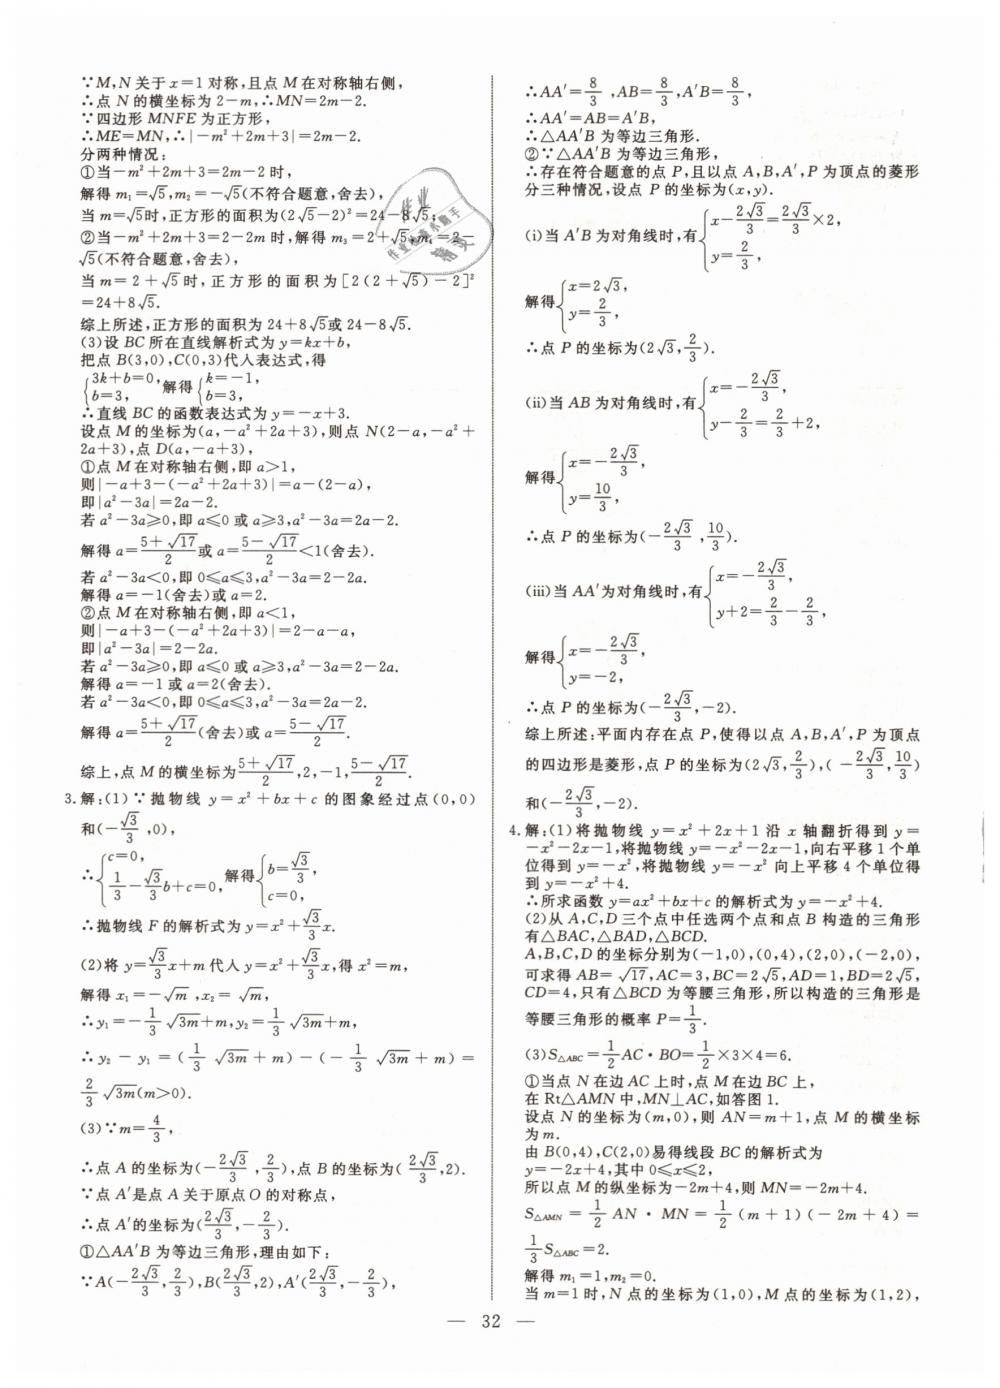 ∵M,N关于x=1对称,且点M在对称轴右侧,
∴点N的横坐标为2-m,∴MN=2m-2.
∵四边形MNFE为正方形,
∴ME=MN,∴|-m²+2m+3|=2m-2.
分两种情况:
①当-m²+2m+3=2m-2时,
解得m₁=√5,m₂=-√5(不符合题意,舍去),
当m=√5时,正方形的面积为(2√5-2)²=24-8√5;
②当-m²+2m+3=2-2m时,解得m₃=2+√5,m₄=2-
√5(不符合题意,舍去),
当m=2+√5时,正方形的面积为[2(2+√5)-2]²
=24+8√5.
综上所述,正方形的面积为24+8√5或24-8√5.
(3)设BC所在直线解析式为y=kx+b,
把点B(3,0),C(0,3)代入表达式,得
{3k+b=0, b=3, 解得{k=-1, b=3,
∴直线BC的函数表达式为y=-x+3.
设点M的坐标为(a,-a²+2a+3),则点N(2-a,-a²+
2a+3),点D(a,-a+3),
①点M在对称轴右侧,即a>1,
则|-a+3-(-a²+2a+3)|=a-(2-a),
即|a²-3a|=2a-2.
若a²-3a≥0,即a≤0或a≥3,a²-3a=2a-2.
解得a=(5+√17)/2或a=(5-√17)/2<1(舍去).
若a²-3a<0,即0≤a≤3,a²-3a=2-2a.
解得a=-1(舍去)或a=2.
②点M在对称轴右侧,即a<1,
则|-a+3-(-a²+2a+3)|=2-a-a,
即|a²-3a|=2-2a.
若a²-3a≥0,即a≤0或a≥3,a²-3a=2-2a.
解得a=-1或a=2(舍去).
若a²-3a<0,即0≤a≤3,a²-3a=2a-2.
解得a=(5+√17)/2(舍去)或a=(5-√17)/2.
综上,点M的横坐标为(5+√17)/2,2,-1,(5-√17)/2.
3.解:(1)∵抛物线y=x²+bx+c的图象经过点(0,0)
和(-√3/3,0),
∴{c=0, 1/3-√3/3b+c=0, 解得{b=√3/3, c=0,
∴抛物线F的解析式为y=x²+√3/3x.
(2)将y=√3/3x+m代入y=x²+√3/3x,得x²=m,
解得x₁=-√m,x₂=√m,
∴y₁=-1/3√3m+m,y₂=1/3√3m+m,
∴y₂-y₁=(1/3√3m+m)-(-1/3√3m+m)=
2/3√3m(m>0).
(3)∵m=4/3,
∴点A的坐标为(-2√3/3,2/3),点B的坐标为(2√3/3,2).
∵点A′是点A关于原点O的对称点,
∴点A′的坐标为(2√3/3,-2/3).
①△AA′B为等边三角形,理由如下:
∵A(-2√3/3,2/3),B(2√3/3,2),A′(2√3/3,-2/3),
∴AA′=8/3,AB=8/3,A′B=8/3,
∴AA′=AB=A′B,
∴△AA′B为等边三角形.
②∵△AA′B为等边三角形,
∴存在符合题意的点P,且以点A,B,A′,P为顶点的菱形
分三种情况,设点P的坐标为(x,y).
(i)当A′B为对角线时,有{x-2√3/3=2√3/3×2, y=2/3,
解得{x=2√3, y=2/3,
∴点P的坐标为(2√3,2/3).
(ii)当AB为对角线时,有{x=-2√3/3, y-2/3=2/3+2,
解得{x=-2√3/3, y=10/3,
∴点P的坐标为(-2√3/3,10/3).
(iii)当AA′为对角线时,有{x=-2√3/3, y+2=2/3-2/3,
解得{x=-2√3/3, y=-2,
∴点P的坐标为(-2√3/3,-2).
综上所述:平面内存在点P,使得以点A,B,A′,P为顶点
的四边形是菱形,点P的坐标为(2√3,2/3),(-2√3/3,10/3)
和(-2√3/3,-2).
4.解:(1)将抛物线y=x²+2x+1沿x轴翻折得到y=
-x²-2x-1,将抛物线y=-x²-2x-1,向右平移1个单
位得到y=-x²,将抛物线y=-x²向上平移4个单位得
到y=-x²+4.
∴所求函数y=ax²+bx+c的解析式为y=-x²+4.
(2)从A,C,D三个点中任选两个点和点B构造的三角形
有△BAC,△BAD,△BCD.
A,B,C,D的坐标分别为(-1,0),(0,4),(2,0),(-2,0),
可求得AB=√17,AC=3,BC=2√5,AD=1,BD=2√5,
CD=4,只有△BCD为等腰三角形,所以构造的三角形是
等腰三角形的概率P=1/3.
(3)S△ABC=1/2AC·BO=1/2×3×4=6.
①当点N在边AC上时,点M在边BC上,
在Rt△AMN中,MN⊥AC,如答图1.
设点N的坐标为(m,0),则AN=m+1,点M的横坐标
为m.
由B(0,4),C(2,0)易得线段BC的解析式为
y=-2x+4,其中0≤x≤2,
所以点M的纵坐标为-2m+4,则MN=-2m+4.
S△AMN=1/2AN·MN=1/2(m+1)(-2m+4)=
1/3S△ABC=2.
解得m₁=1,m₂=0.
当m=1时,N点的坐标为(1,0),M点的坐标为(1,2),
— 32 —